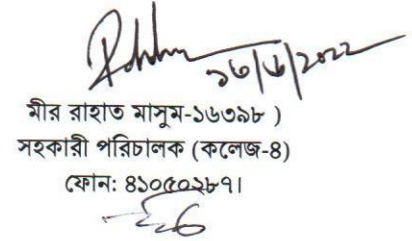 ১৬/৬/2022
মীর রাহাত মাসুম-১৬৩৯৮ )
সহকারী পরিচালক (কলেজ-4)
ফোন: ৪১০৫০২৮৭।